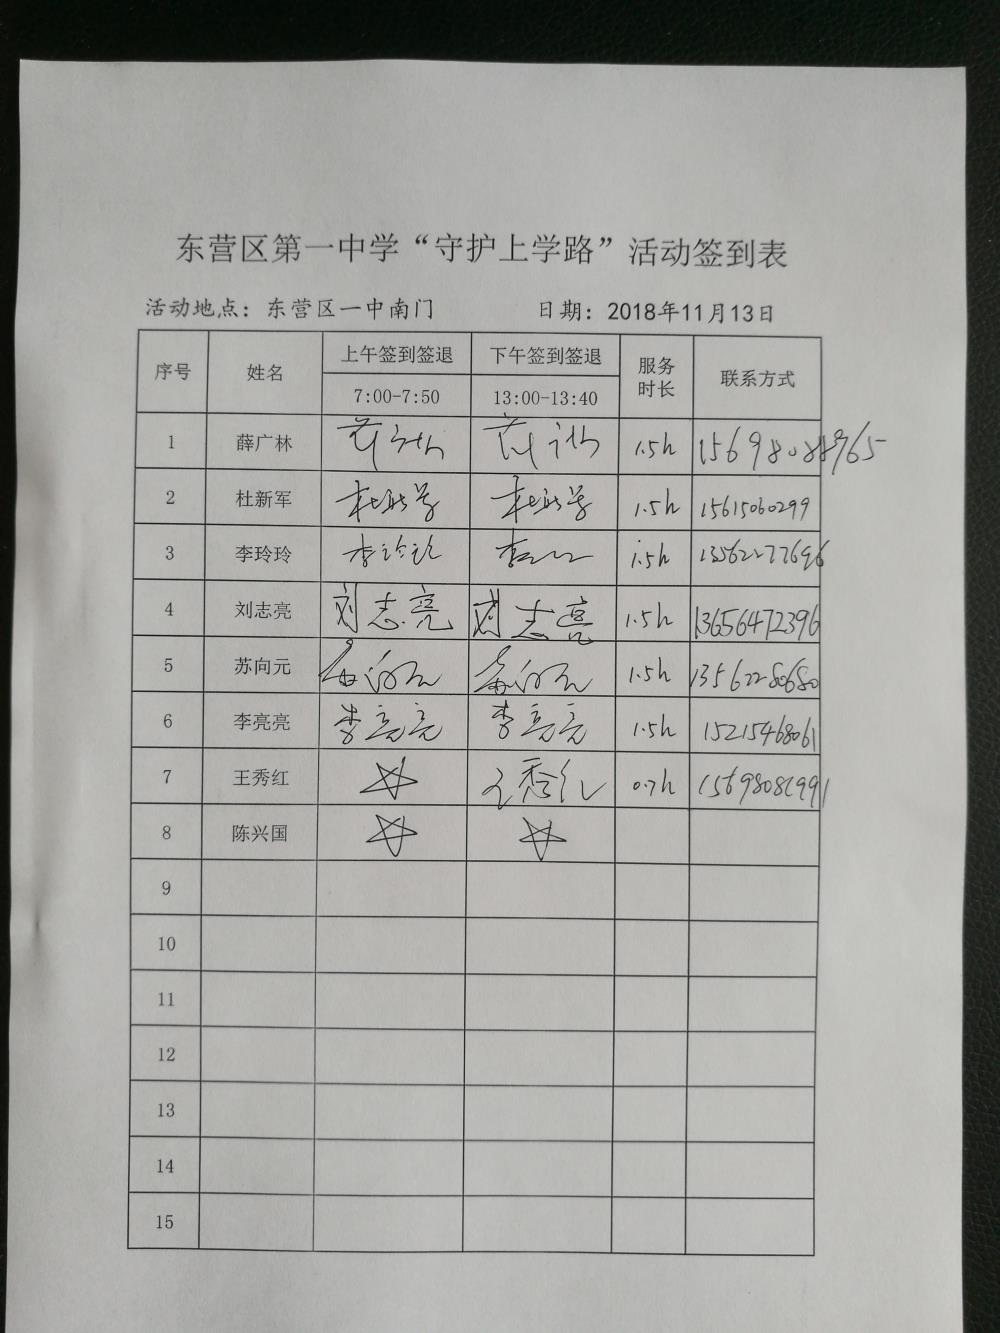 东营区第一中学“守护上学路”活动签到表
活动地点：东营区一中南门 日期：2018年11月13日
序号 姓名 上午签到签退 下午签到签退 服务时长 联系方式
7:00-7:50 13:00-13:40
1 薛广林 1.5h
2 杜新军 杜新军 杜新军 1.5h 15615060299
3 李玲玲 李玲玲 李玲玲 1.5h 13562277696
4 刘志亮 刘志亮 刘志亮 1.5h 13656472396
5 苏向元 苏向元 苏向元 1.5h 13562280680
6 李亮亮 李亮亮 李亮亮 1.5h 15215468061
7 王秀红 王秀红 0.7h 15698081991
8 陈兴国
9
10
11
12
13
14
15